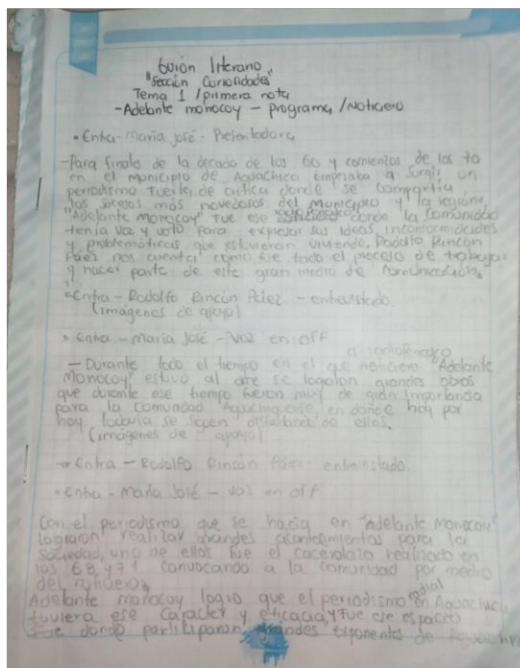 Guión literario
"Sección Curiosidades"
Tema 1 / primera nota
- Adelante monocoy - programa / Noticiero
• Entra - maria josé - Presentadora
- Para finales de la decada de los 60 y comienzos de los 70
en el municipio de Aguachica empezaba a surgir un
periodismo fuerte, de critica donde se compartia
los sucesos más novedosos del municipio y la región,
"Adelante monocoy" fue ese donde la comunidad
tenía voz y voto para expresar sus ideas, inconformidades
y problemáticas que estuvieran viviendo, Rodolfo Rincón
Páez nos cuenta como fue todo el proceso de trabajar
y hacer parte de este gran medio de comunicación.
• Entra - Rodolfo Rincón Páez - entrevistado.
(imágenes de apoyo)
• Entra - maria José - voz en off
el radioperiodico
- Durante todo el tiempo en el que noticiero "Adelante
Monocoy" estuvo al aire se lograron grandes obras
que durante ese tiempo fueron muy de gran importancia
para la comunidad Aguachiquense, en donde hoy por
hoy todavía se siguen disfrutando de ellas.
(imágenes de apoyo)
• Entra - Rodolfo Rincón Páez - entrevistado.
• Entra - María José - voz en off
Con el periodismo que se hacía en "Adelante Monocoy"
lograron realizar grandes acontecimientos para la
sociedad, uno de ellos fue el cacerolazo realizado en
los 68 y 71 convocando a la comunidad por medio
del noticiero,
radial
Adelante monocoy logro que el periodismo en Aguachica
tuviera ese caracter y eficacia, y fue ese espacio
donde participaron grandes exponentes de